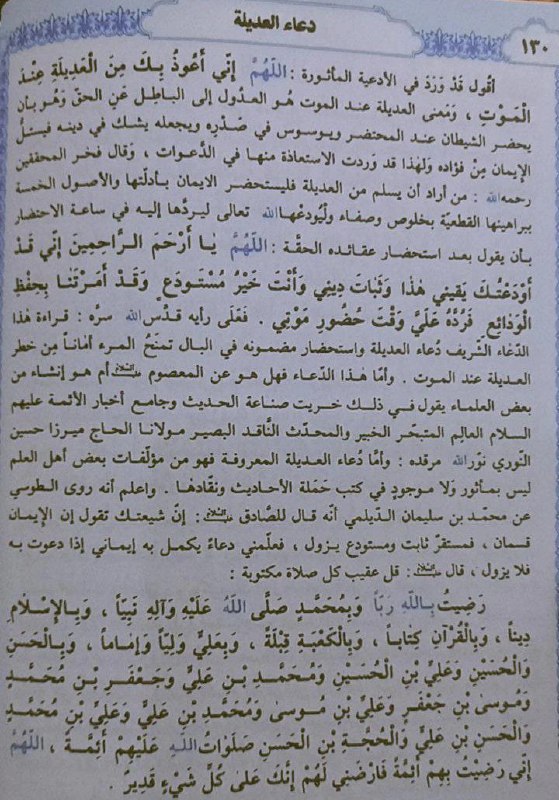 دعاء العديلة
١٣٠
أقول قَدْ وَرَدَ في الأدعية المأثورة : اللَهُمَّ إنّي أعُوذُ بِكَ مِنَ الْعَديلَةِ عِنْدَ
الْمَوْتِ ، وَمَعْنى العديلة عند الموت هُو العدُول إلى البَاطِل عَنِ الحَقّ وَهُو بأن
يحضر الشيطان عند المحتضر ويوسوس في صَدْرِه ويجعله يشك في دينه فيستلّ
الإيمان مِنْ فؤاده وَلهذا قد وَردت الاستعاذة منها في الدَّعوات ، وَقال فخر المحققين
رحمه الله : من أراد أن يسلم من العديلة فليستحضر الايمان بأدلّتها والأصول الخمسة
ببراهينها القطعيّة بخلوص وصفاء وَلْيُودعْها الله تعالى ليردّها إليه في ساعة الاحتضار
بأن يقول بعد استحضار عقائده الحقّة : اللَهُمَّ يٰا أَرْحَمَ الرّاحِمينَ إنّي قَدْ
أَوْدَعْتُكَ يَقيني هٰذا وَثَبَاتَ دِيني وَأَنْتَ خَيْرُ مُسْتَودَعٍ وَقَدْ أَمَرْتَنا بِحِفْظِ
الْوَدائِعِ فَرُدَّهُ عَلَيَّ وَقْتَ حُضُورِ مَوْتي . فَعَلَى رأيه قدّس الله سرّه : قراءة هذا
الدّعاء الشّريف دُعاء العديلة واستحضار مضمونه في البال تمنَحُ المرء أماناً مِن خطر
العديلة عند الموت . وأمّا هذا الدّعاء فهل هو عن المعصوم عليه السلام أم هو إنشاء من
بعض العلماء يقول في ذلك خريت صناعة الحديث وجامع أخبار الأئمة عليهم
السلام العالِم المتبحّر الخبير والمحدّث النّاقد البصير مولانا الحاج ميرزا حسين
النّوري نوّر الله مرقده : وأمّا دُعاء العديلة المعروفة فهو من مؤلّفات بعض أهل العلم
ليس بمأثور وَلا موجودٍ في كتب حَمَلة الأحاديث ونقّادها . واعلم أنه روى الطوسي
عن محمّد بن سليمان الدّيلمي أنّه قال للصّادق عليه السلام : إنّ شيعتك تقول إن الإيمان
قسمان ، فمستقرّ ثابت ومستودع يزول ، فعلّمني دعاءً يكمل به إيماني إذا دعوت به
فلا يزول ، قال عليه السلام : قل عقيب كل صلاة مكتوبة :
رَضيتُ بِاللّهِ رَبّاً وَبِمُحَمَّدٍ صَلَّى اللّهُ عَلَيْهِ وَآلِهِ نَبِيّاً ، وَبِالإسْلامِ
ديناً ، وَبِالْقُرْآنِ كِتاباً ، وَبِالْكَعْبَةِ قِبْلَةً ، وَبِعَليٍّ وَلِيّاً وَإمَاماً ، وَبِالْحَسَنِ
وَالْحُسَيْنِ وَعَلِيِّ بْنِ الْحُسَيْنِ وَمُحَمَّدِ بْنِ عَلِيٍّ وَجَعْفَرِ بْنِ مُحَمَّدٍ
وَمُوسىٰ بْنِ جَعْفَرٍ وَعَلِيِّ بْنِ مُوسى وَمُحَمَّدِ بْنِ عَلِيٍّ وَعَلِيِّ بْنِ مُحَمَّدٍ
وَالْحَسَنِ بْنِ عَلِيٍّ وَالْحُجَّةِ بْنِ الْحَسَنِ صَلَوَاتُ اللّهِ عَلَيْهِمْ أئِمَّةً ، اللّهُمَّ
إنّي رَضِيْتُ بِهِمْ أئِمَّةً فَارْضَني لَهُمْ إنَّكَ عَلىٰ كُلِّ شَيْءٍ قَديرٌ .